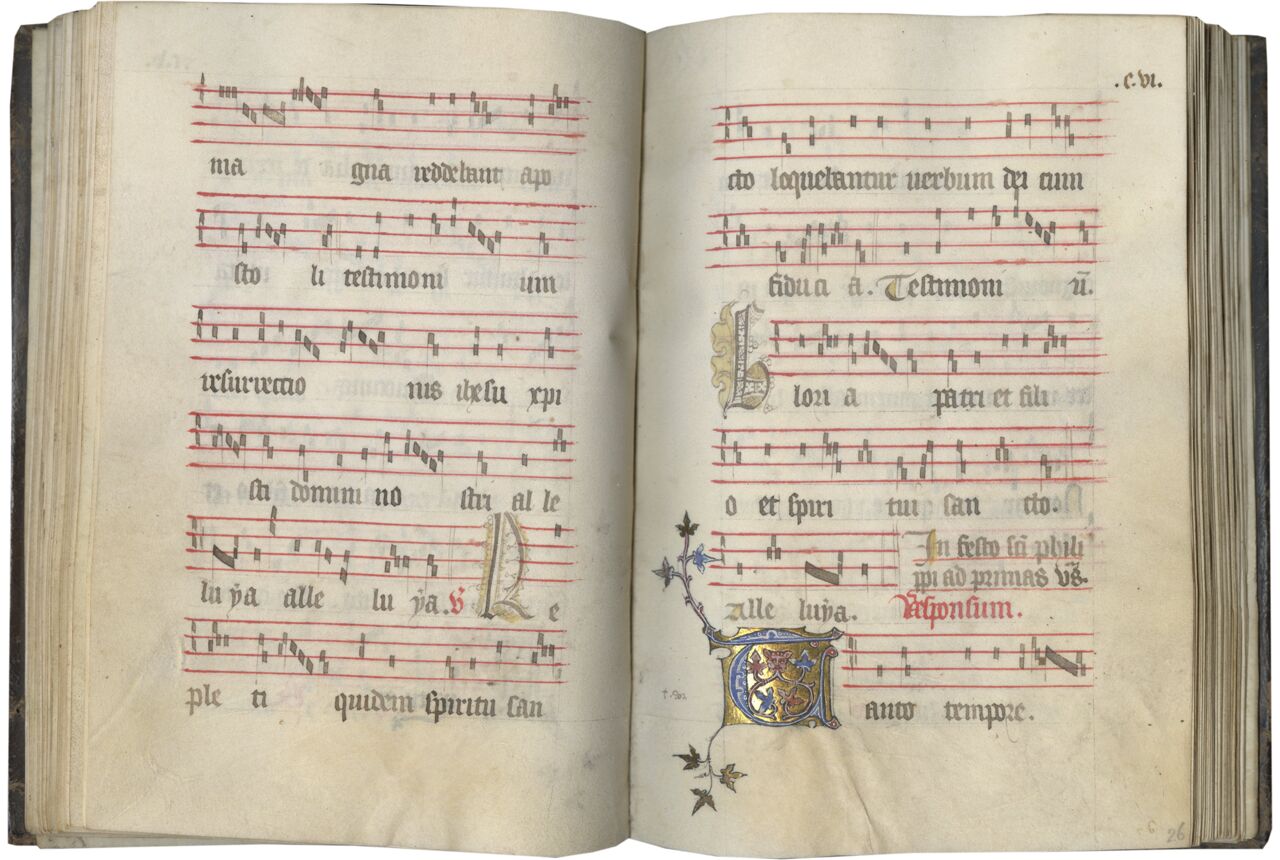 ma gna reddebant apo
sto li testimoni um
resurrectio nis ihesu xpi
sti domini no stri al le
lu ẏa alle lu ẏa. V R e
ple ti quidem spiritu san
.c.vi.
cto loquebantur verbum dei cum
fiduci a. Testimoni ū.
G lori a patri et fili
o et spiri tui san cto.
In festo sc̄i phili
ppi ad primas vs̄.
Alle luẏa. Responsum.
T anto tempore.
26